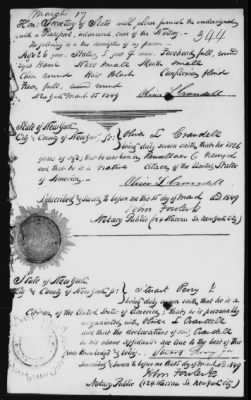 March 17
Hon: Secretary of State will please furnish the undersigned
with a Passport, addressed care of the Notary -
344
The following is the description of my person -
Age 26 years. Stature, 5 feet Forehead full, round
Nose small Mouth small
Chin round Hair Black Complexion blond
Face, full, round
New York March 15 1849 Oliver L Crandell
State of New York
City & County of New York ss: Oliver L Crandell
being duly sworn saith, that he is 26
years of age, that he was born in Rensselaer Co New York
and that he is a native citizen of the United States
of America -
Oliver L Crandell
Subscribed & sworn to before me this 15th day of March AD 1849
John Fowler Jr
Notary Public (124 Nassau St. New York City)
State of New York
City & County of New York ss: Stuart Perry
being duly sworn saith, that he is a
Citizen of the United States of America, that he is personally
acquainted with Oliver L Crandell
and that the declarations of said Crandell
in the above affidavit are true to the best of this
knowledge & belief. Stuart Perry
Subscribed & sworn to before me this 15th day of March AD 1849
John Fowler Jr
Notary Public (124 Nassau St. New York City)